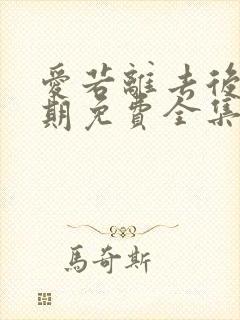 愛若離去後
期免費全集
馬奇斯